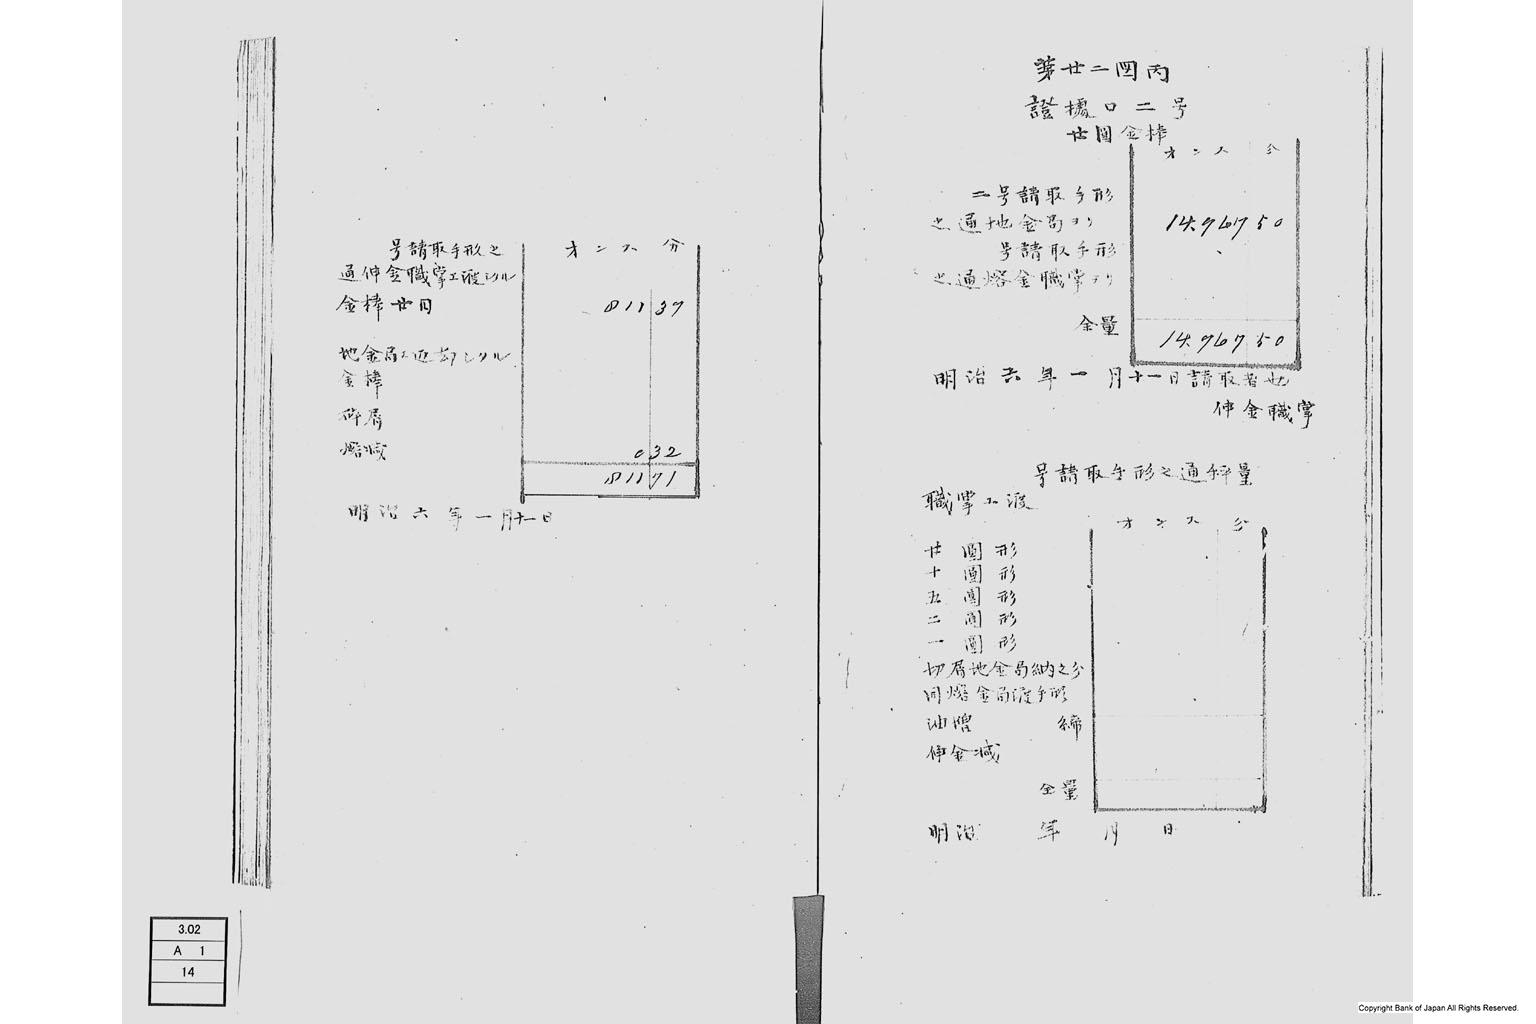 第廿二圖丙
證據口二号
廿圓金棒
オンス 分
二号請取手形
之通地金局ヨリ 14.967 50
号請取手形
之通熔金職掌ヨリ
全量 14.967 50
明治六年一月十一日請取者也
伸金職掌
号請取手形之通秤量
職掌エ渡
オンス 分
廿圓形
十圓形
五圓形
二圓形
一圓形
切屑地金局納之分
同熔金局渡手形
油 締
伸金減
全量
明治 年 月 日
号請取手形之 オンス 分
通伸金職掌エ渡シタル
金棒廿円 811 37
地金局エ返却シタル
金棒
砕屑
熔減 0 32
811 71
明治六年一月十一日
3.02
A 1
14
Copyright Bank of Japan All Rights Reserved.